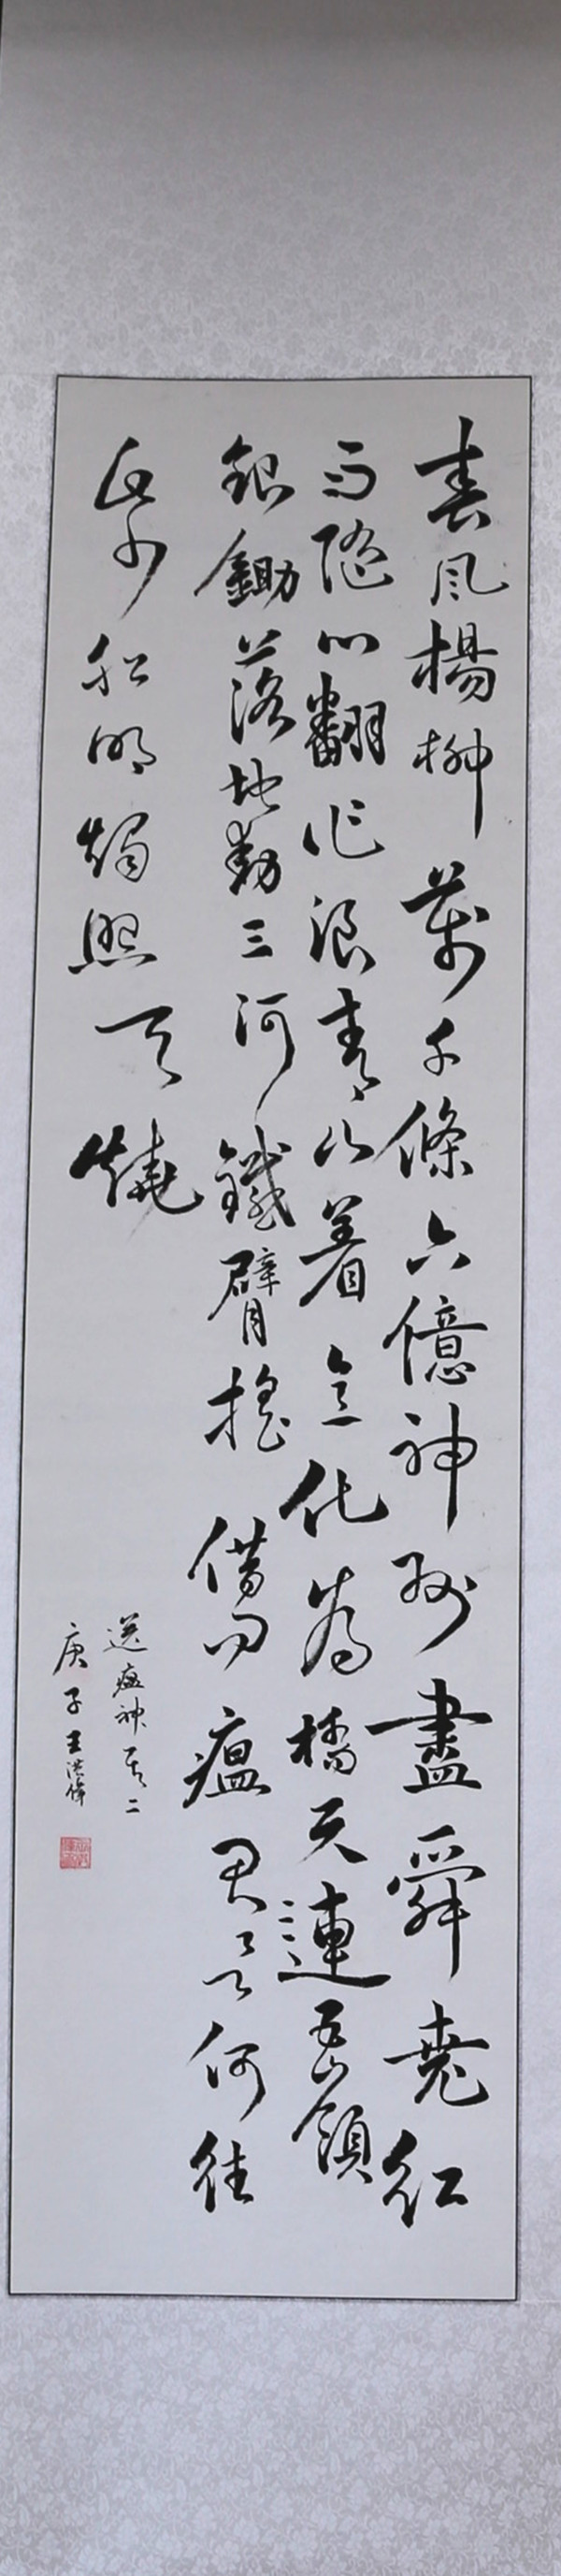 春風楊柳萬千條六億神州盡舜堯紅
雨隨心翻作浪青山着意化為橋天連五嶺
銀鋤落地動三河鐵臂搖借問瘟君欲何往
紙船明燭照天燒
送瘟神其二
庚子王洪偉